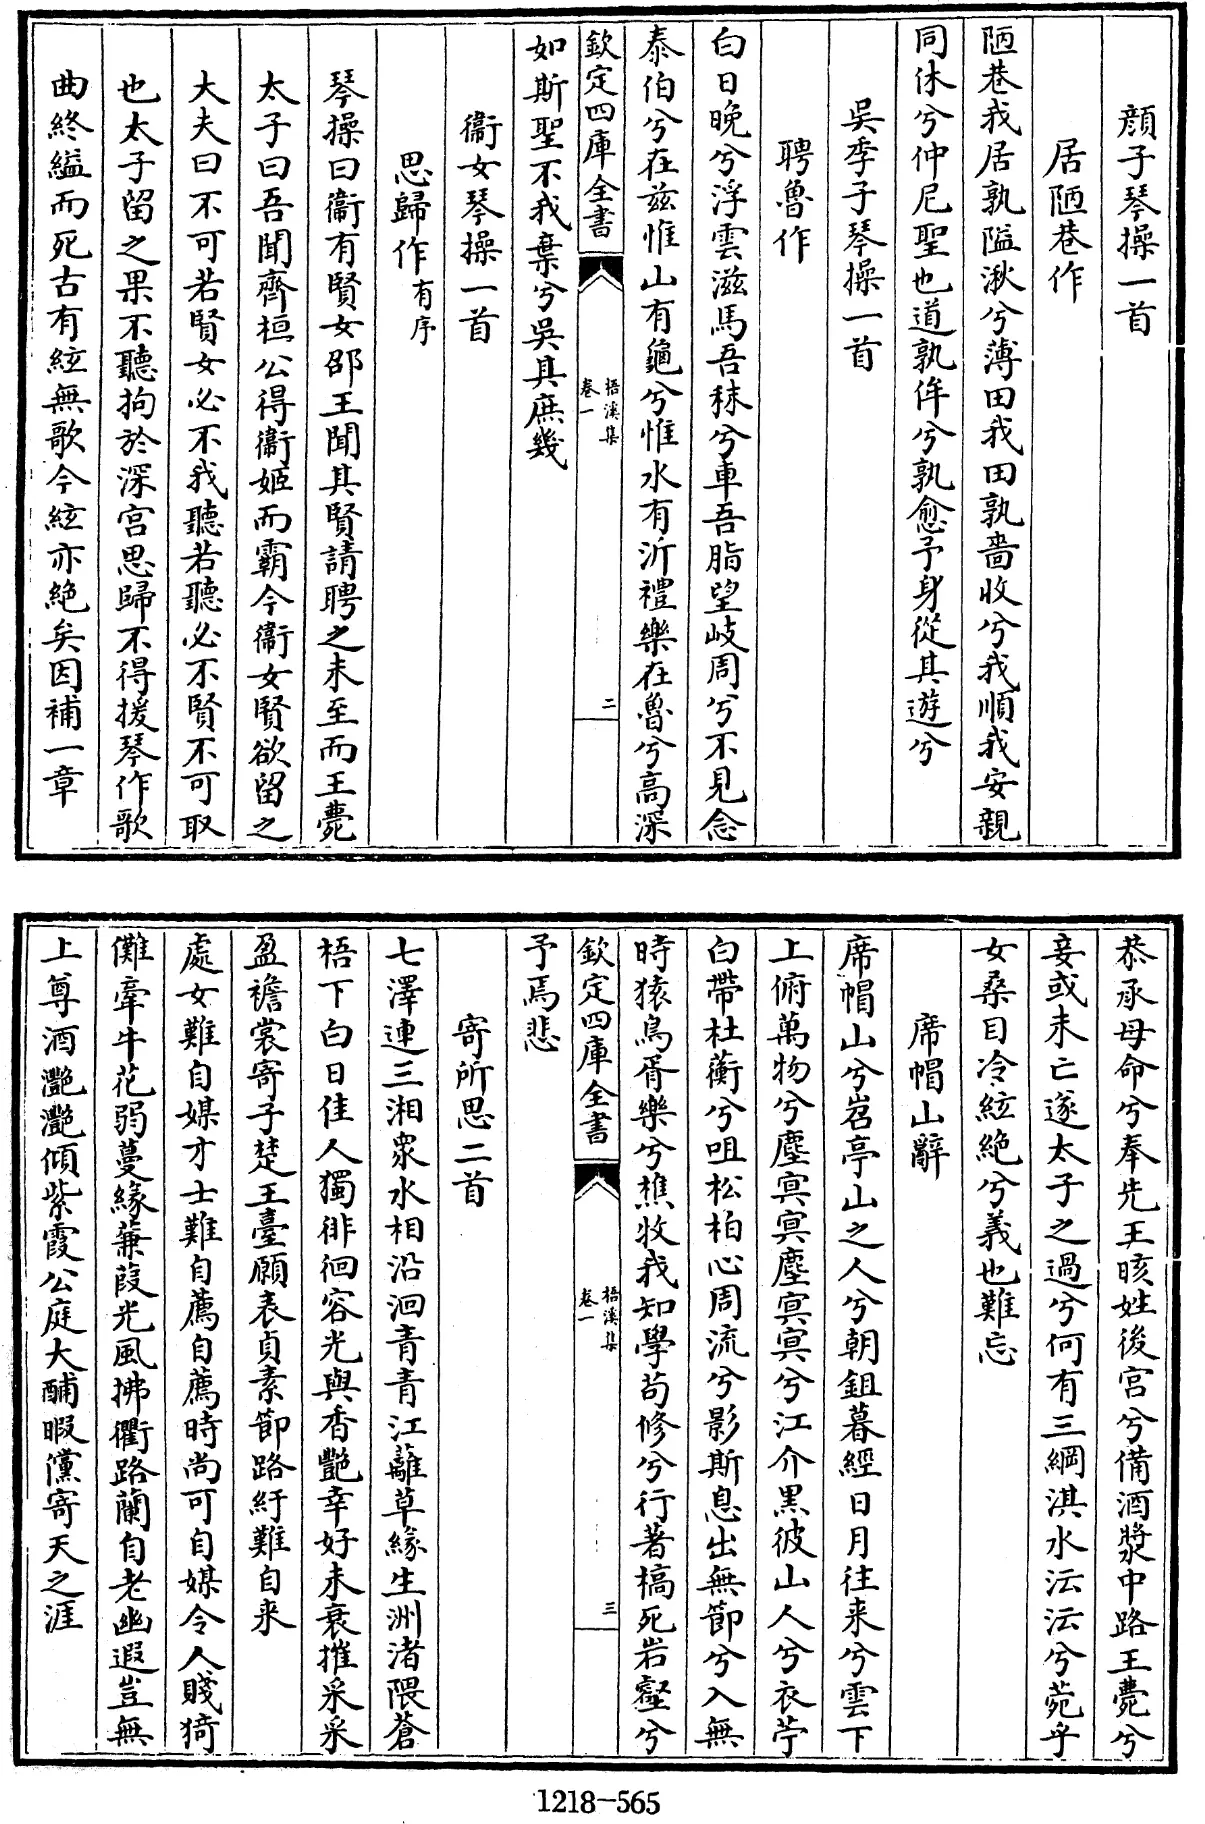 顔子琴操一首
居陋巷作
陋巷我居孰隘湫兮薄田我田孰嗇收兮我順我安親
同休兮仲尼聖也道孰侔兮孰愈予身從其遊兮
吳季子琴操一首
聘魯作
白日晚兮浮雲滋馬吾秣兮車吾脂望岐周兮不見念
泰伯兮在兹惟山有龜兮惟水有沂禮樂在魯兮高深
欽定四庫全書
梧溪集
卷一
二
如斯聖不我棄兮吳其庶幾
衞女琴操一首
思歸作有序
琴操曰衞有賢女邵王聞其賢請聘之未至而王薨
太子曰吾聞齊桓公得衞姬而霸今衞女賢欲留之
大夫曰不可若賢女必不我聽若聽必不賢不可取
也太子留之果不聽拘於深宫思歸不得援琴作歌
曲終縊而死古有絃無歌今絃亦絶矣因補一章
恭承母命兮奉先王晐姓後宫兮備酒漿中路王薨兮
妾或未亡遂太子之過兮何有三綱淇水沄沄兮菀乎
女桑目冷絃絶兮義也難忘
席帽山辭
席帽山兮岧亭山之人兮朝鉏暮經日月往来兮雲下
上俯萬物兮塵㝠㝠塵㝠㝠兮江介黒彼山人兮衣苧
白帶杜蘅兮咀松柏心周流兮影斯息出無節兮入無
時猿鳥胥樂兮樵牧我知學苟修兮行著槁死岩壑兮
欽定四庫全書
梧溪集
卷一
三
予焉悲
寄所思二首
七澤連三湘衆水相沿洄青青江蘺草緣生洲渚隈蒼
梧下白日佳人獨徘徊容光與香艷幸好未衰摧采采
盈襜裳寄子楚王臺願表貞素節路紆難自来
處女難自媒才士難自薦自薦時尚可自媒令人賤猗
儺牽牛花弱蔓緣蒹葭光風拂衢路蘭自老幽遐豈無
上尊酒灔灔傾紫霞公庭大酺暇儻寄天之涯
1218-565